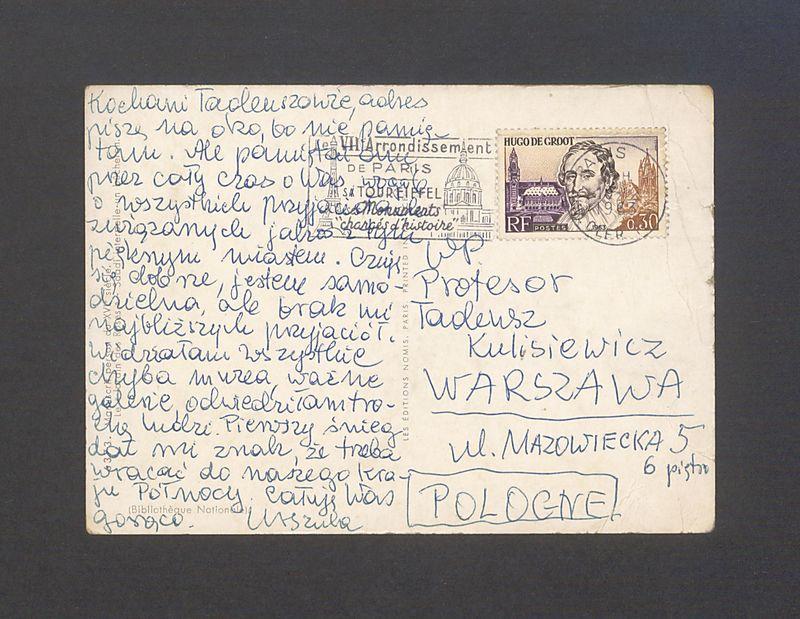 Kochani Tadeuszowie, adres
piszę na oko, bo nie pamię-
tam. Ale pamiętałam
przez cały czas o Was
o wszystkich przyjaciołach
związanych jakoś z tym
pięknym miastem. Czuję
się dobrze, jestem samo-
dzielna, ale brak mi
najbliższych przyjaciół.
Widziałam wszystkie
chyba muzea, ważne
galerie, odwiedziłam tro-
chę ludzi. Pierwszy śnieg
dał mi znak, że trzeba
wracać do naszego kra-
ju Północy. Całuję Was
gorąco. Urszula
(Bibliothèque Nationale)
LES ÉDITIONS NOMIS, PARIS. PRINTED IN
VII Arrondissement
DE PARIS
SA TOUR EIFFEL
Ces Monuments
"chargés d'histoire"
HUGO DE GROOT
RF
POSTES
0,30
WP.
Profesor
Tadeusz
Kulisiewicz
WARSZAWA
ul. MAZOWIECKA 5
6 piętro
POLOGNE